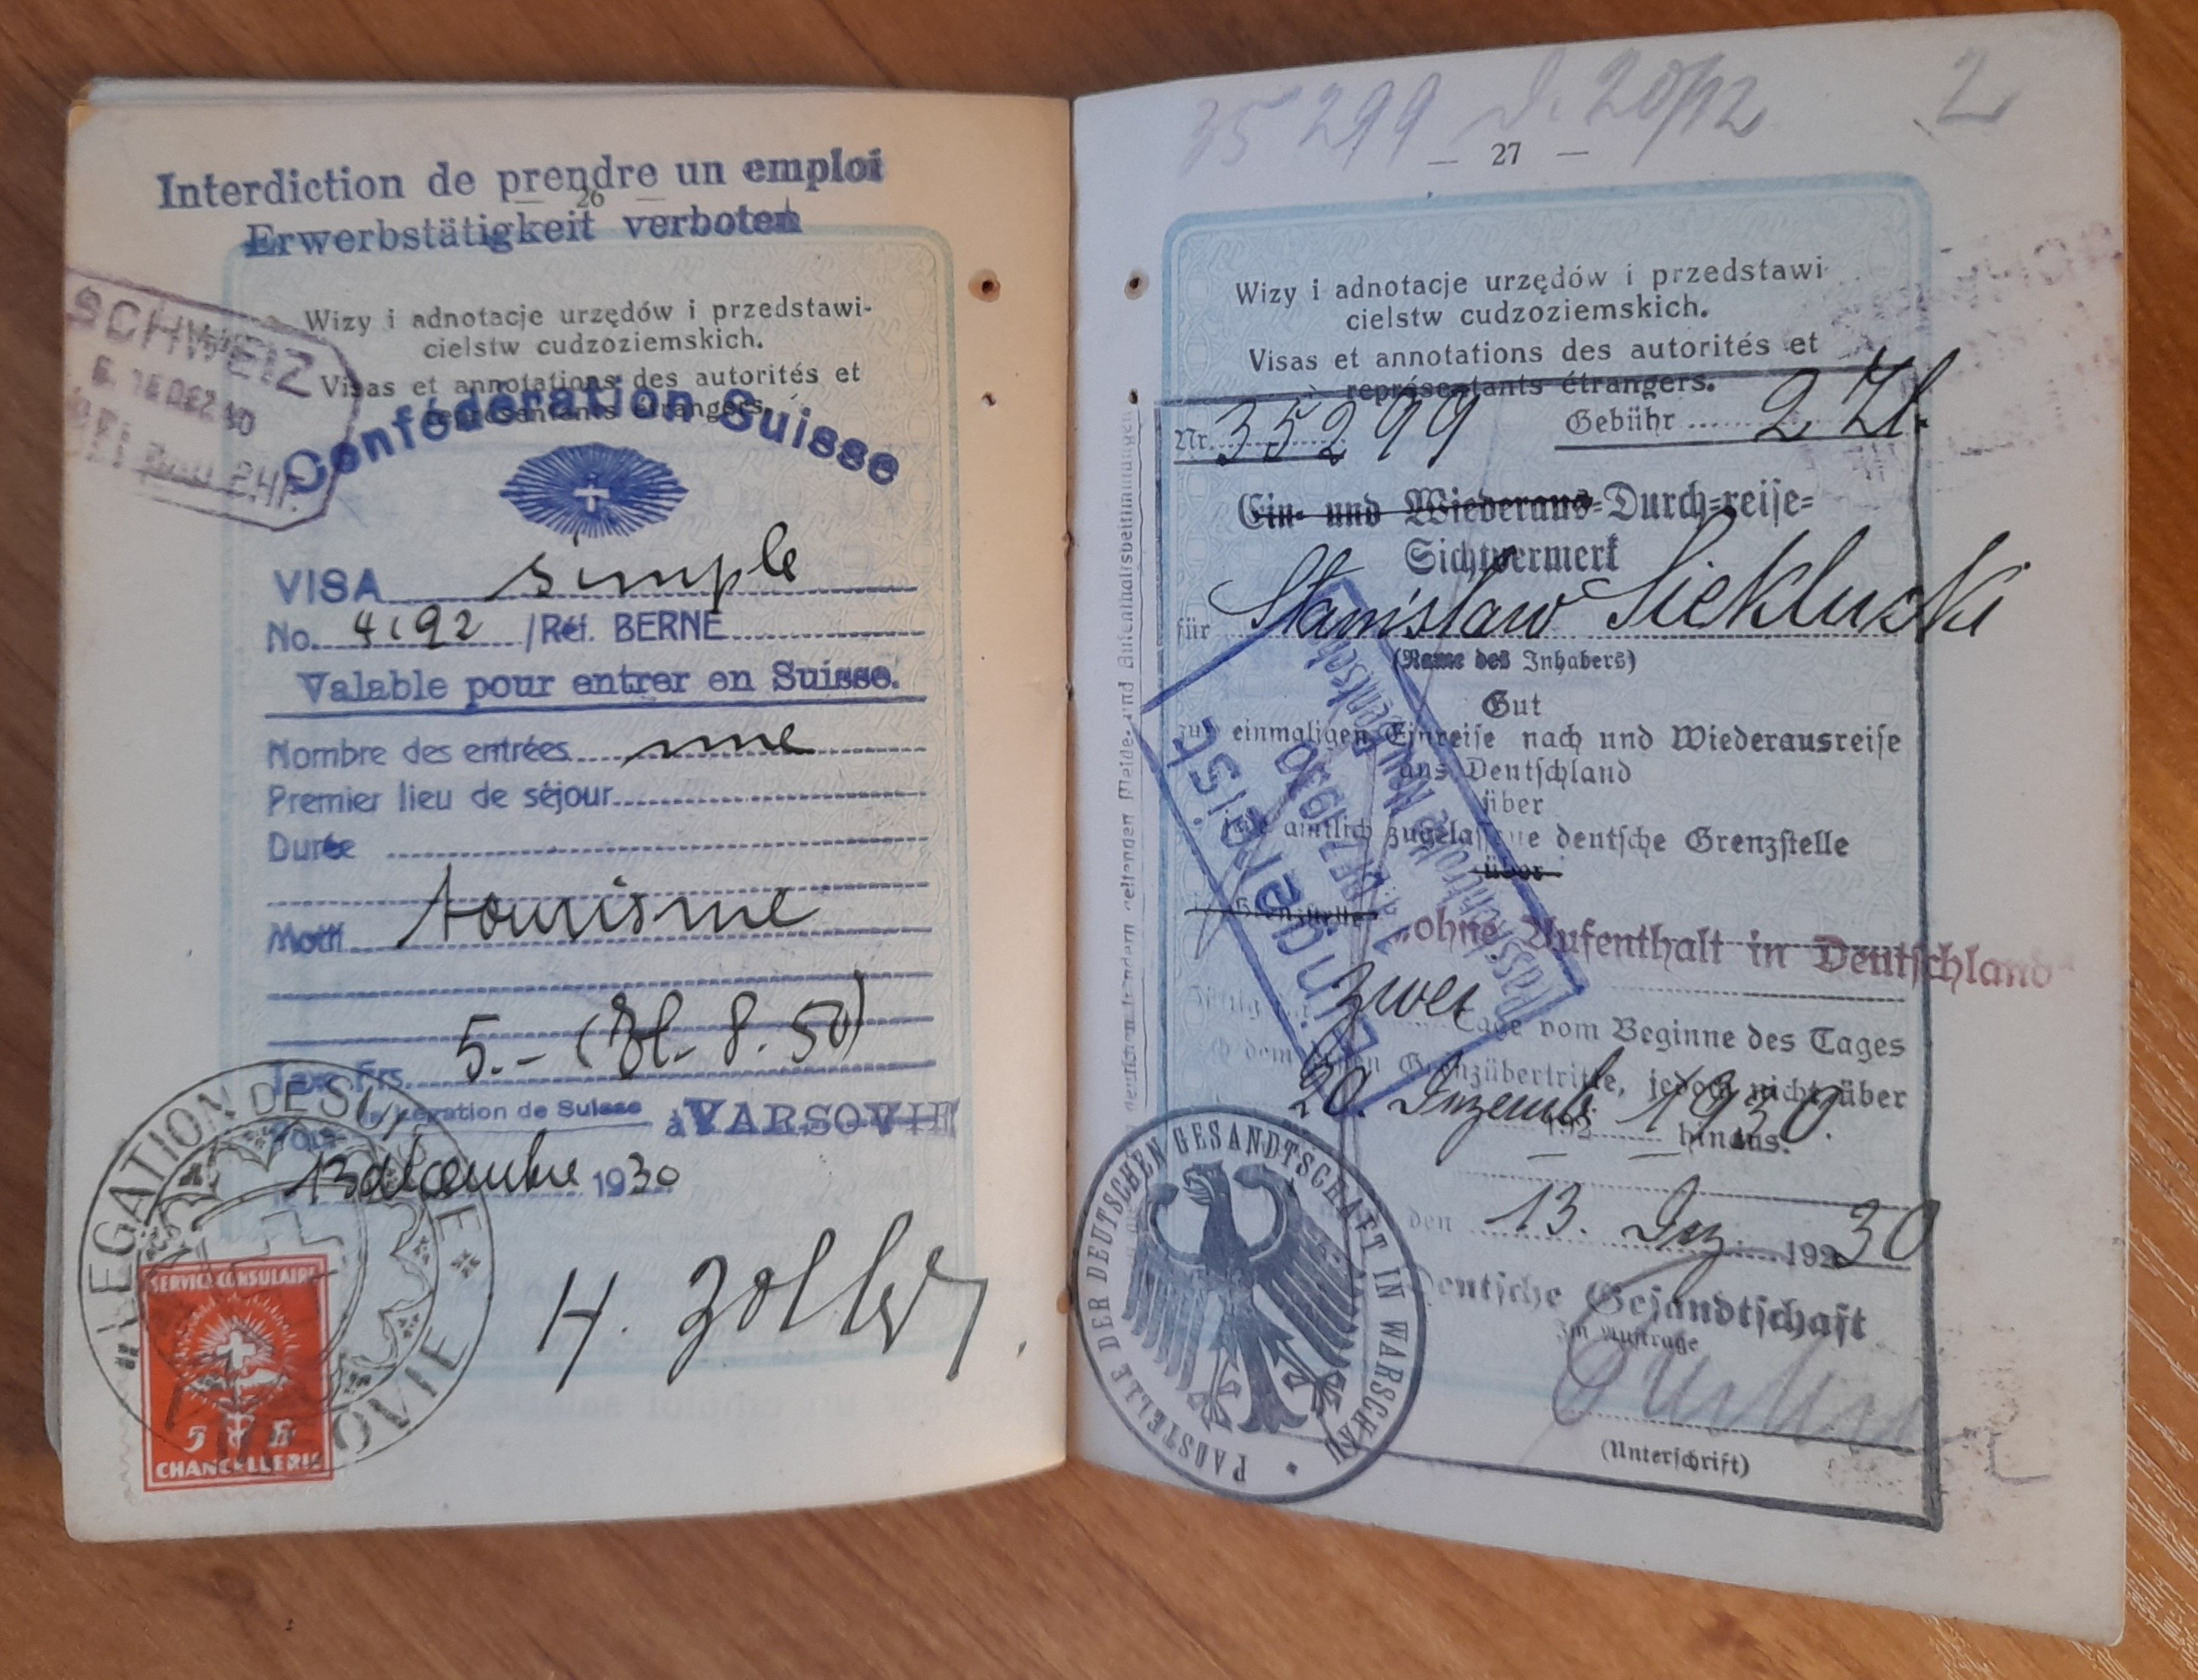 Interdiction de prendre un emploi
— 26 —
Erwerbstätigkeit verboten
Wizy i adnotacje urzędów i przedstawi-
cielstw cudzoziemskich.
Visas et annotations des autorités et
représentants étrangers.
SCHWEIZ
DEZ 30
Confédération Suisse
VISA simple
No. 4192 /Réf. BERNE
Valable pour entrer en Suisse.
Nombre des entrées une
Premier lieu de séjour
Durée
Motif tourisme
Taxe Frs. 5.- (Zl. 8.50)
Légation de Suisse à VARSOVIE
13 décembre 1930
LEGATION DE SUISSE
VARSOVIE
SERVICE CONSULAIRE
5 Fr
CHANCELLERIE
35299 d. 20/12 2
— 27 —
Wizy i adnotacje urzędów i przedstawi-
cielstw cudzoziemskich.
Visas et annotations des autorités et
représentants étrangers.
Nr. 35299 Gebühr 2 Zl.
Ein- und Wiederaus-Durch-reise-
Sichtvermerk
für Stanisław Siekłucki
(Name des Inhabers)
Gut
zur einmaligen Einreise nach und Wiederausreise
aus Deutschland
über
jede amtlich zugelassene deutsche Grenzstelle
über
Grenzstelle
ohne Aufenthalt in Deutschland
Gültig zwei Tage vom Beginne des Tages
Grenzübertritte, jedoch nicht über
20. Dezemb. 1930. 192 hinaus.
den 13. Dez 192 30
Deutsche Gesandtschaft
Im Auftrage
(Unterschrift)
PAßSTELLE DER DEUTSCHEN GESANDTSCHAFT IN WARSCHAU
Eingereist
DEZ 1930